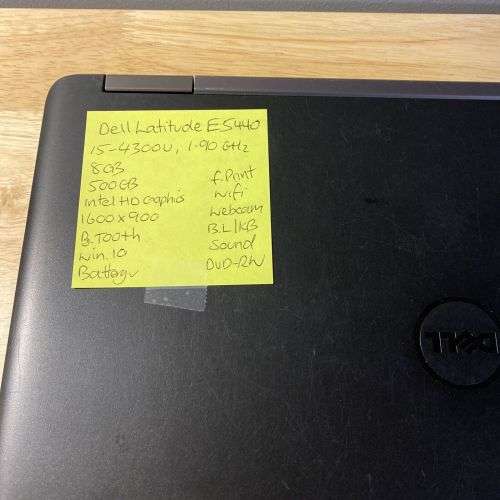 Dell Latitude E5440
i5-4300U, 1.90 GHz
8GB
500GB
Intel HD Graphis
1600x900
B.Tooth
win.10
Battery
f.Print
wifi
webcam
B.L/KB
Sound
DVD-RW
DELL